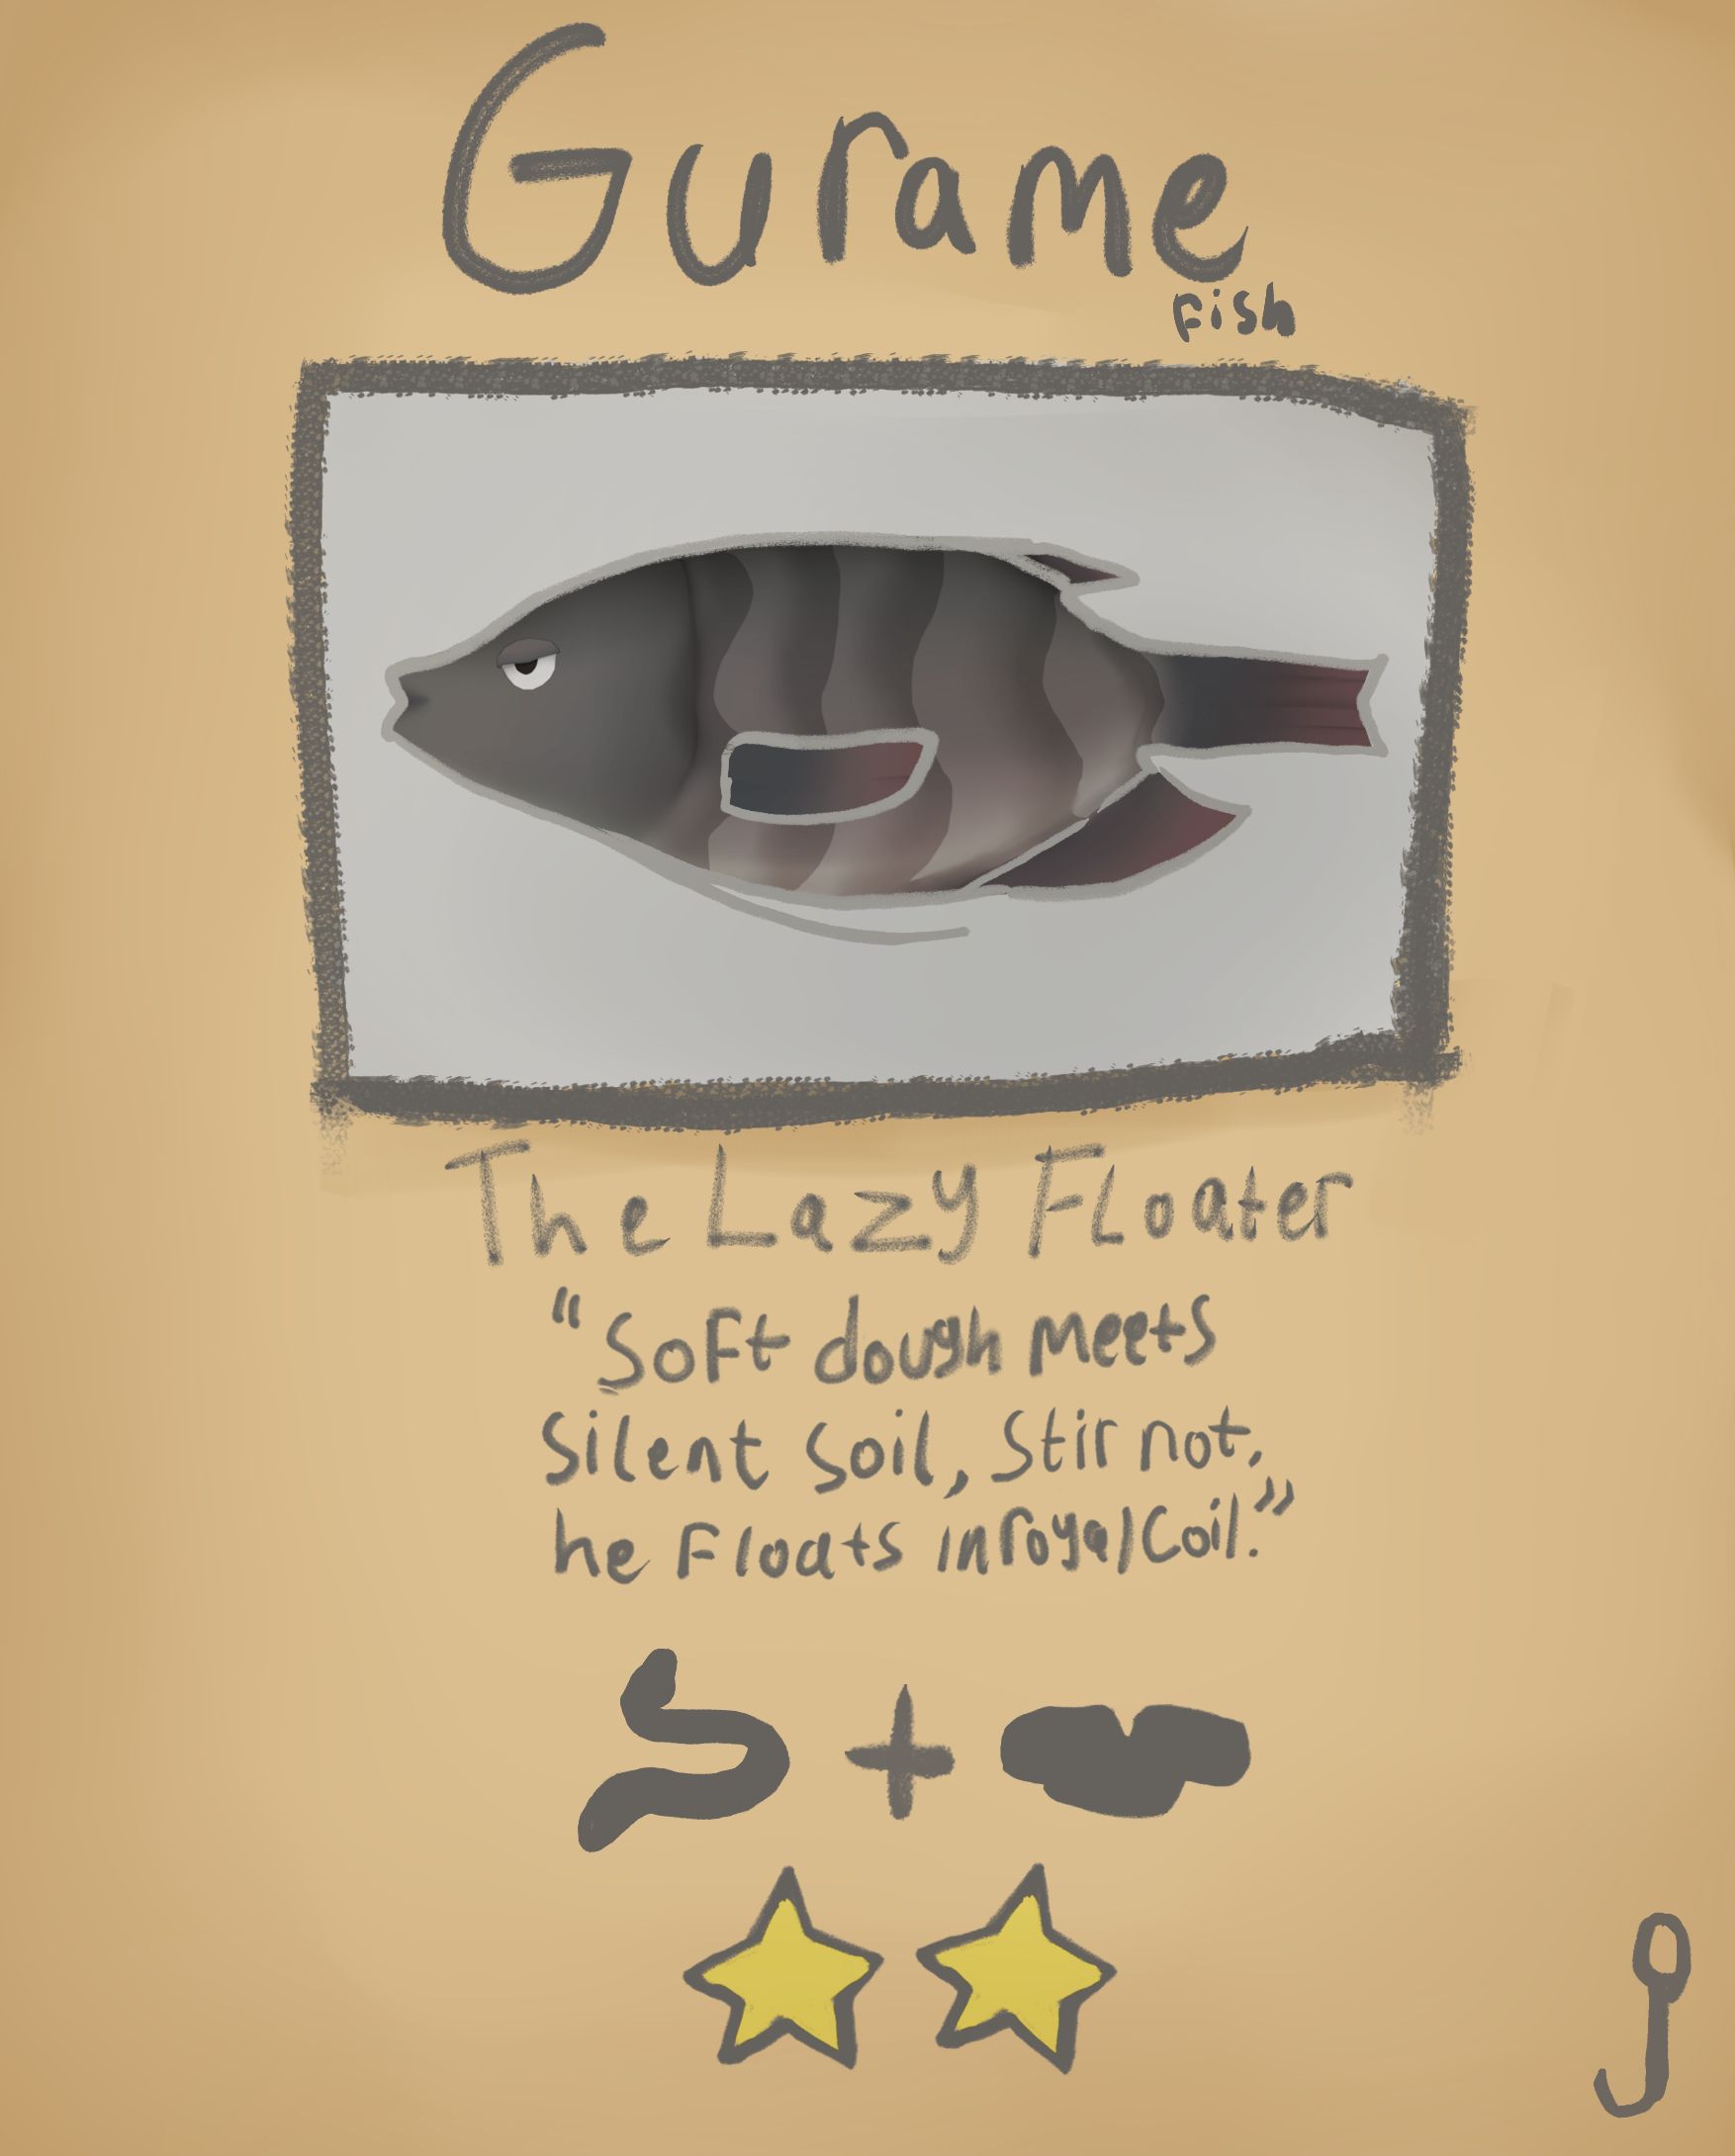 Gurame
Fish
The Lazy Floater
“Soft dough meets
Silent Soil, Stir not,
he Floats in royal Coil.”
+